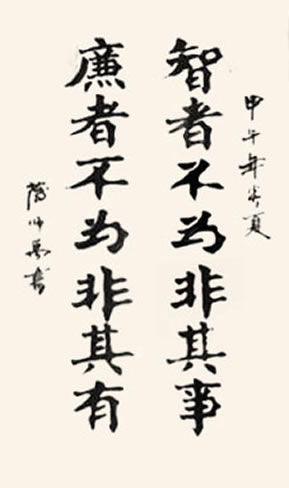 甲午年
智者不为非其事
廉者不为非其有
书